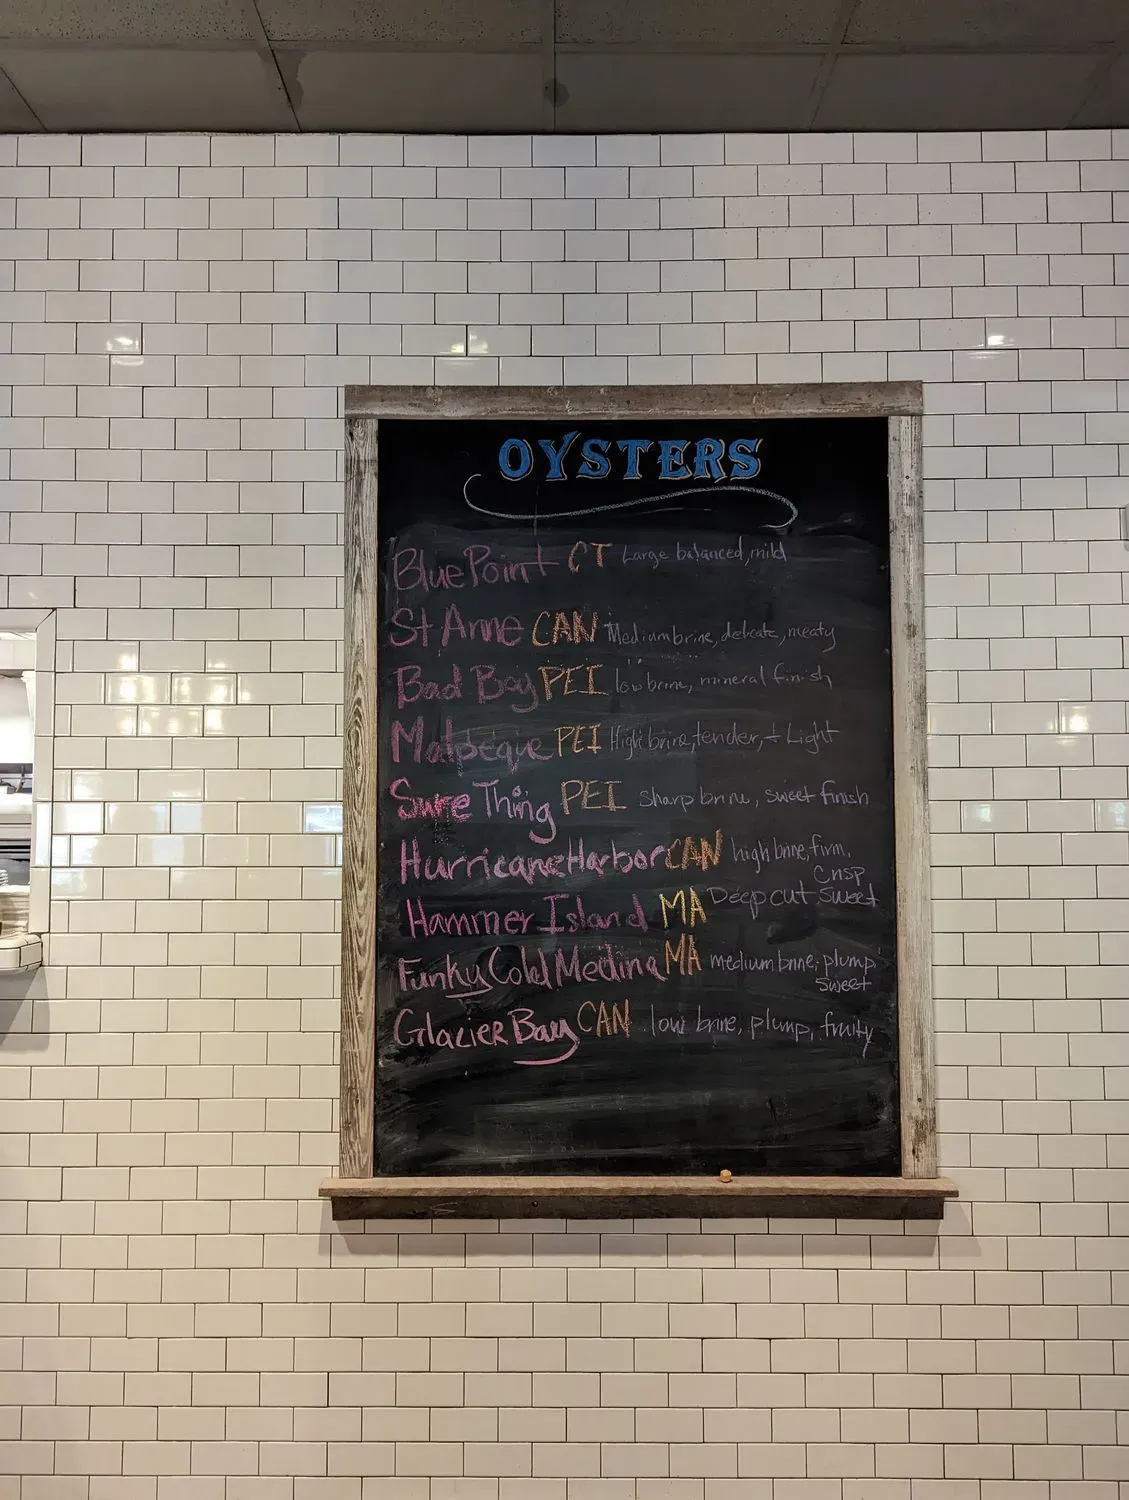 OYSTERS
Blue Point CT Large balanced, mild
St Anne CAN Medium brine, delicate, meaty
Bad Bay PEI low brine, mineral finish
Malpeque PEI High brine, tender, + Light
Sure Thing PEI Sharp brine, sweet finish
Hurricane Harbor CAN high brine, firm,
Crisp
Hammer Island MA Deep cut, Sweet
Funky Cold Medina MA medium brine, plump,
Sweet
Glacier Bay CAN low brine, plump, fruity